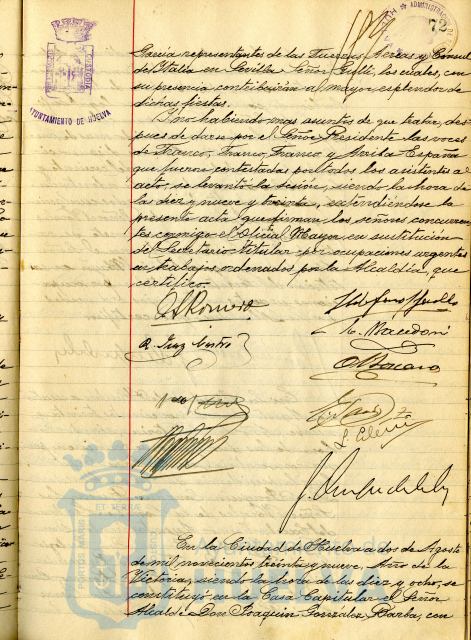 72
AYUNTAMIENTO DE HUELVA
García representantes de las Fuerzas Aereas y Cónsul
de Italia en Sevilla Señor los cuales, con
su presencia contribuirán al mayor esplendor de
dichas fiestas.
Y no habiendo mas asuntos de que tratar, des-
pues de darse por el Señor Presidente las voces
de Franco, Franco, Franco y Arriba España
que fueron contestadas por todos los asistentes al
acto, se levantó la sesión, siendo la hora de
las diez y nueve y treinta, extendiéndose la
presente acta que firman los señores concurren-
tes conmigo el Oficial Mayor, en sustitución
del Secretario titular por ocupaciones urgentes
en trabajos ordenados por la Alcaldía, que
certifico.
Romero
Macedoni
En la Ciudad de Huelva a dos de Agosto
de mil novecientos treinta y nueve, Año de la
Victoria, siendo la hora de las diez y ocho, se
constituyó en la Casa Capitular el Señor
Alcalde Don Joaquín González Barba, con